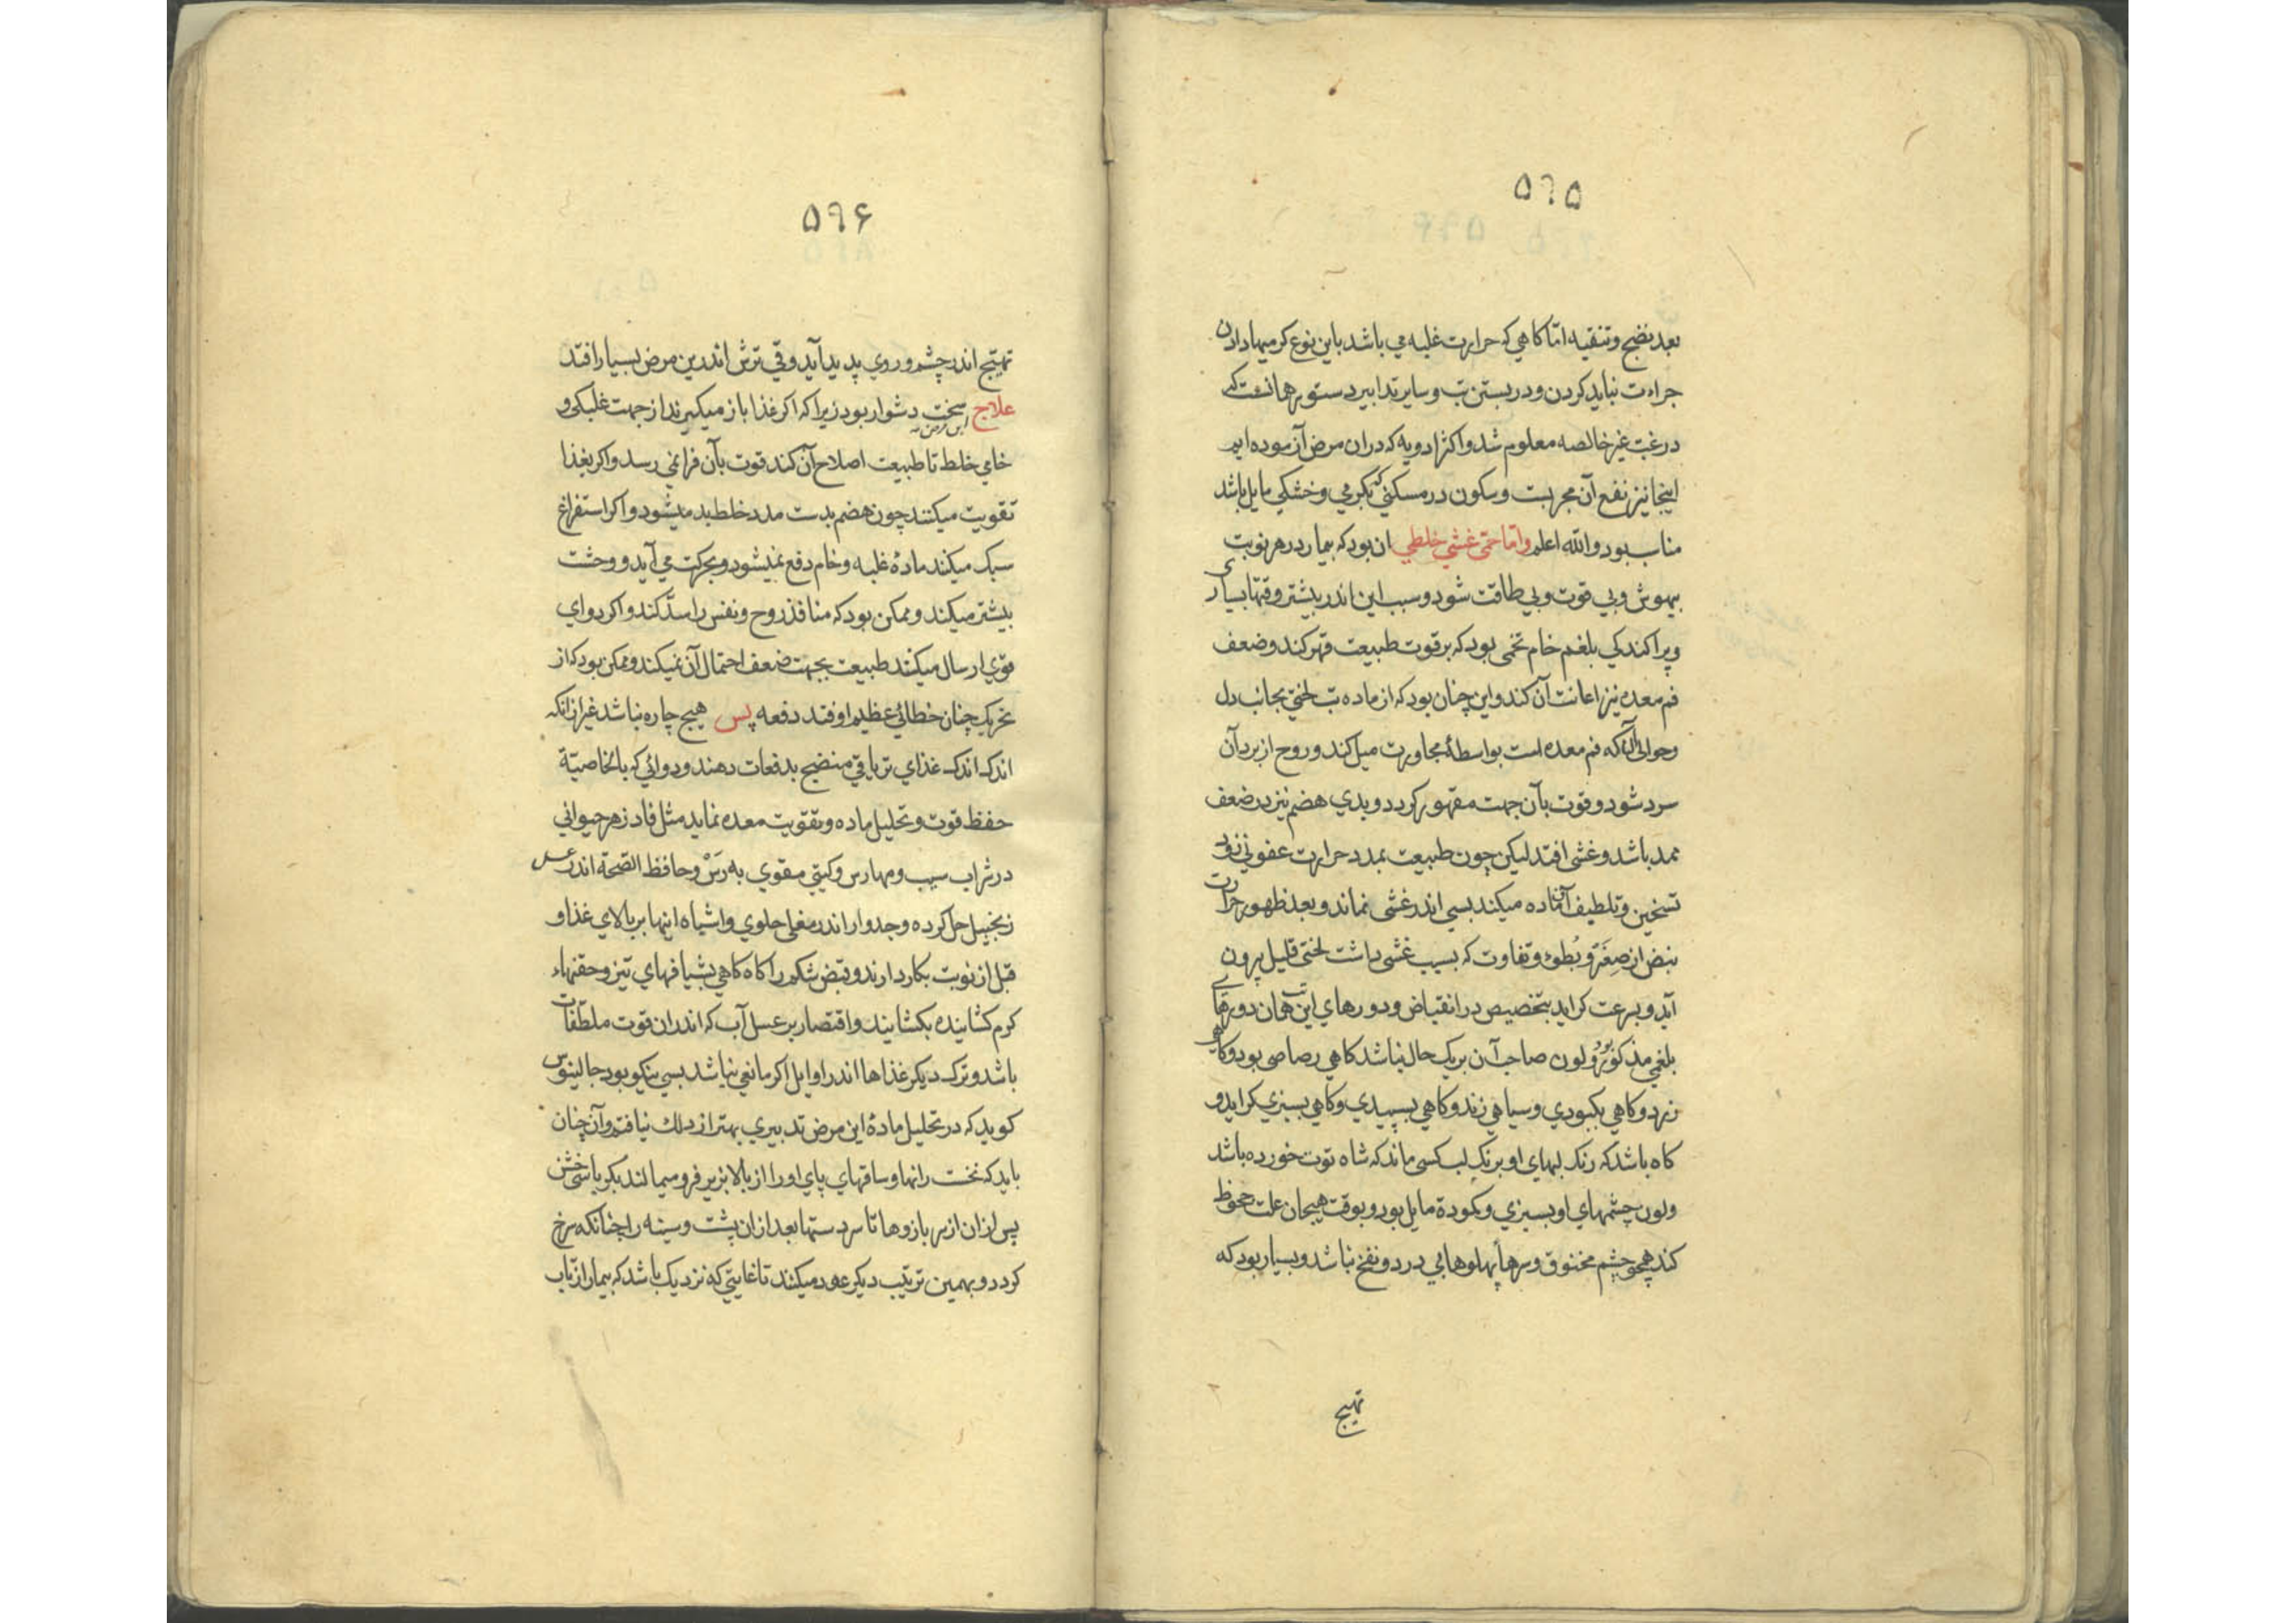 ۵۹۵
بعد نضج و تنقیه اما کاهی که حرارت غلبه می باشد باین نوع کرمیها دادن
جراءت نباید کردن و در بستن تب و سایر تدابیر دستور همانست که
در غب غیر خالصه معلوم شد و اکثر ادویه که در ان مرض آزموده ایم
اینجا نیز نفع آن مجربست و سکون در مسکنی که بکرمی و خشکی مایل باشد
مناسب بود والله اعلم و اما حمی غشی خلطی ان بود که بیمار در هر نوبت
بیهوش و بی قوت و بی طاقت شود و سبب این اندر بیشتر وقتها بسیاری
و پراکندکی بلغم خام تخمی بود که بر قوت طبیعت قهر کند و ضعف
فم معده نیز اعانت آن کند و این چنان بود که از ماده تب لختی بجانب دل
و حوالی آن که فم معده است بواسطهٔ مجاورت میل کند و روح از برد آن
سرد شود و قوت بآن جهت مقهور کردد و بدی هضم نیز در ضعف
ممد باشد و غشی افتد لیکن چون طبیعت بمدد حرارت عفونی زود
تسخین و تلطیف آن ماده میکند بسی اندر غشی نماند و بعد ظهور حرارت
نبض از صغر و بُطوء و تفاوت که بسبب غشی داشت لختی قلیل بیرون
آید و بسرعت کراید بتخصیص در انقباض و دورهای این تب همان دورهای
بلغمی مذکور بود و لون صاحب آن بر یک حال نباشد کاهی رصاصی بود و کاهی
زرد و کاهی بکبودی و سیاهی زند و کاهی بسپیدی و کاهی بسبزی کراید و
کاه باشد که رنک لبهای او برنک لب کسی ماند که شاه توت خورده باشد
و لون چشمهای او بسبزی و کمودة مایل بود و بوقت هیجان علت جحوظ
کند همچو چشم مخنوق و سرها پهلوها بی درد و نفخ نباشد و بسیار بود که
تهیج
۵۹۶
تهیج اندر چشم و روی پدید آید و قی ترش اندرین مرض بسیار افتد
علاج این مرض سخت دشوار بود زیرا که اکر غذا باز میکیرند از جهت غلبکی و
خامی خلط تا طبیعت اصلاح آن کند قوت بآن فرا نمی رسد و اکر بغذا
تقویت میکنند چون هضم بدست مدد خلط بد میشود و اکر استفراغ
سبک میکند مادهٔ غلبه و خام دفع نمیشود و بحرکت می آید و وحشت
بیشتر میکند و ممکن بود که منافذ روح و نفس را سدّ کند و اکر دوای
قوی ارسال میکنند طبیعت بجهت ضعف احتمال آن نمیکند و ممکن بود که از
تحریک چنان خطائی عظیم اوفتد دفعه پس هیچ چاره نباشد غیر از انکه
اندک اندک غذای تریاقی منضج بدفعات دهند و دوائی که بالخاصیّة
حفظ قوت و تحلیل ماده و تقویت معده نماید مثل فادزهر حیوانی
در شراب سیب و مهارس و کیتی مقوی به رَسْ و حافظ الصحة اندر عسل
زنجبیل حل کرده و جدوار اندر مغلی حلوی و اشباه اینها بر بالای غذا و
قبل از نوبت بکار دارند و قبض شکم را کاه کاهی بشیافهای تیز و حقنهاء
کرم کشاینده بکشایند و اقتصار بر عسل آب که اندران قوت ملطفات
باشد و ترک دیکر غذاها اندر اوایل اکر مانعی نباشد بسی نیکو بود جالینوس
کوید که در تحلیل مادهٔ این مرض تدبیری بهتر از دلک نیافتم و آن چنان
باید که نخست رانها و ساقهای پای او را از بالا بزیر فرو میمالند بکرباسی خشن
پس از ان از سر بازوها تا سر دستها بعد از ان پشت و سینه را چنانکه سرخ
کردد و بهمین ترتیب دیکر عود میکنند تا غایتی که نزدیک باشد که بیمار از تاب